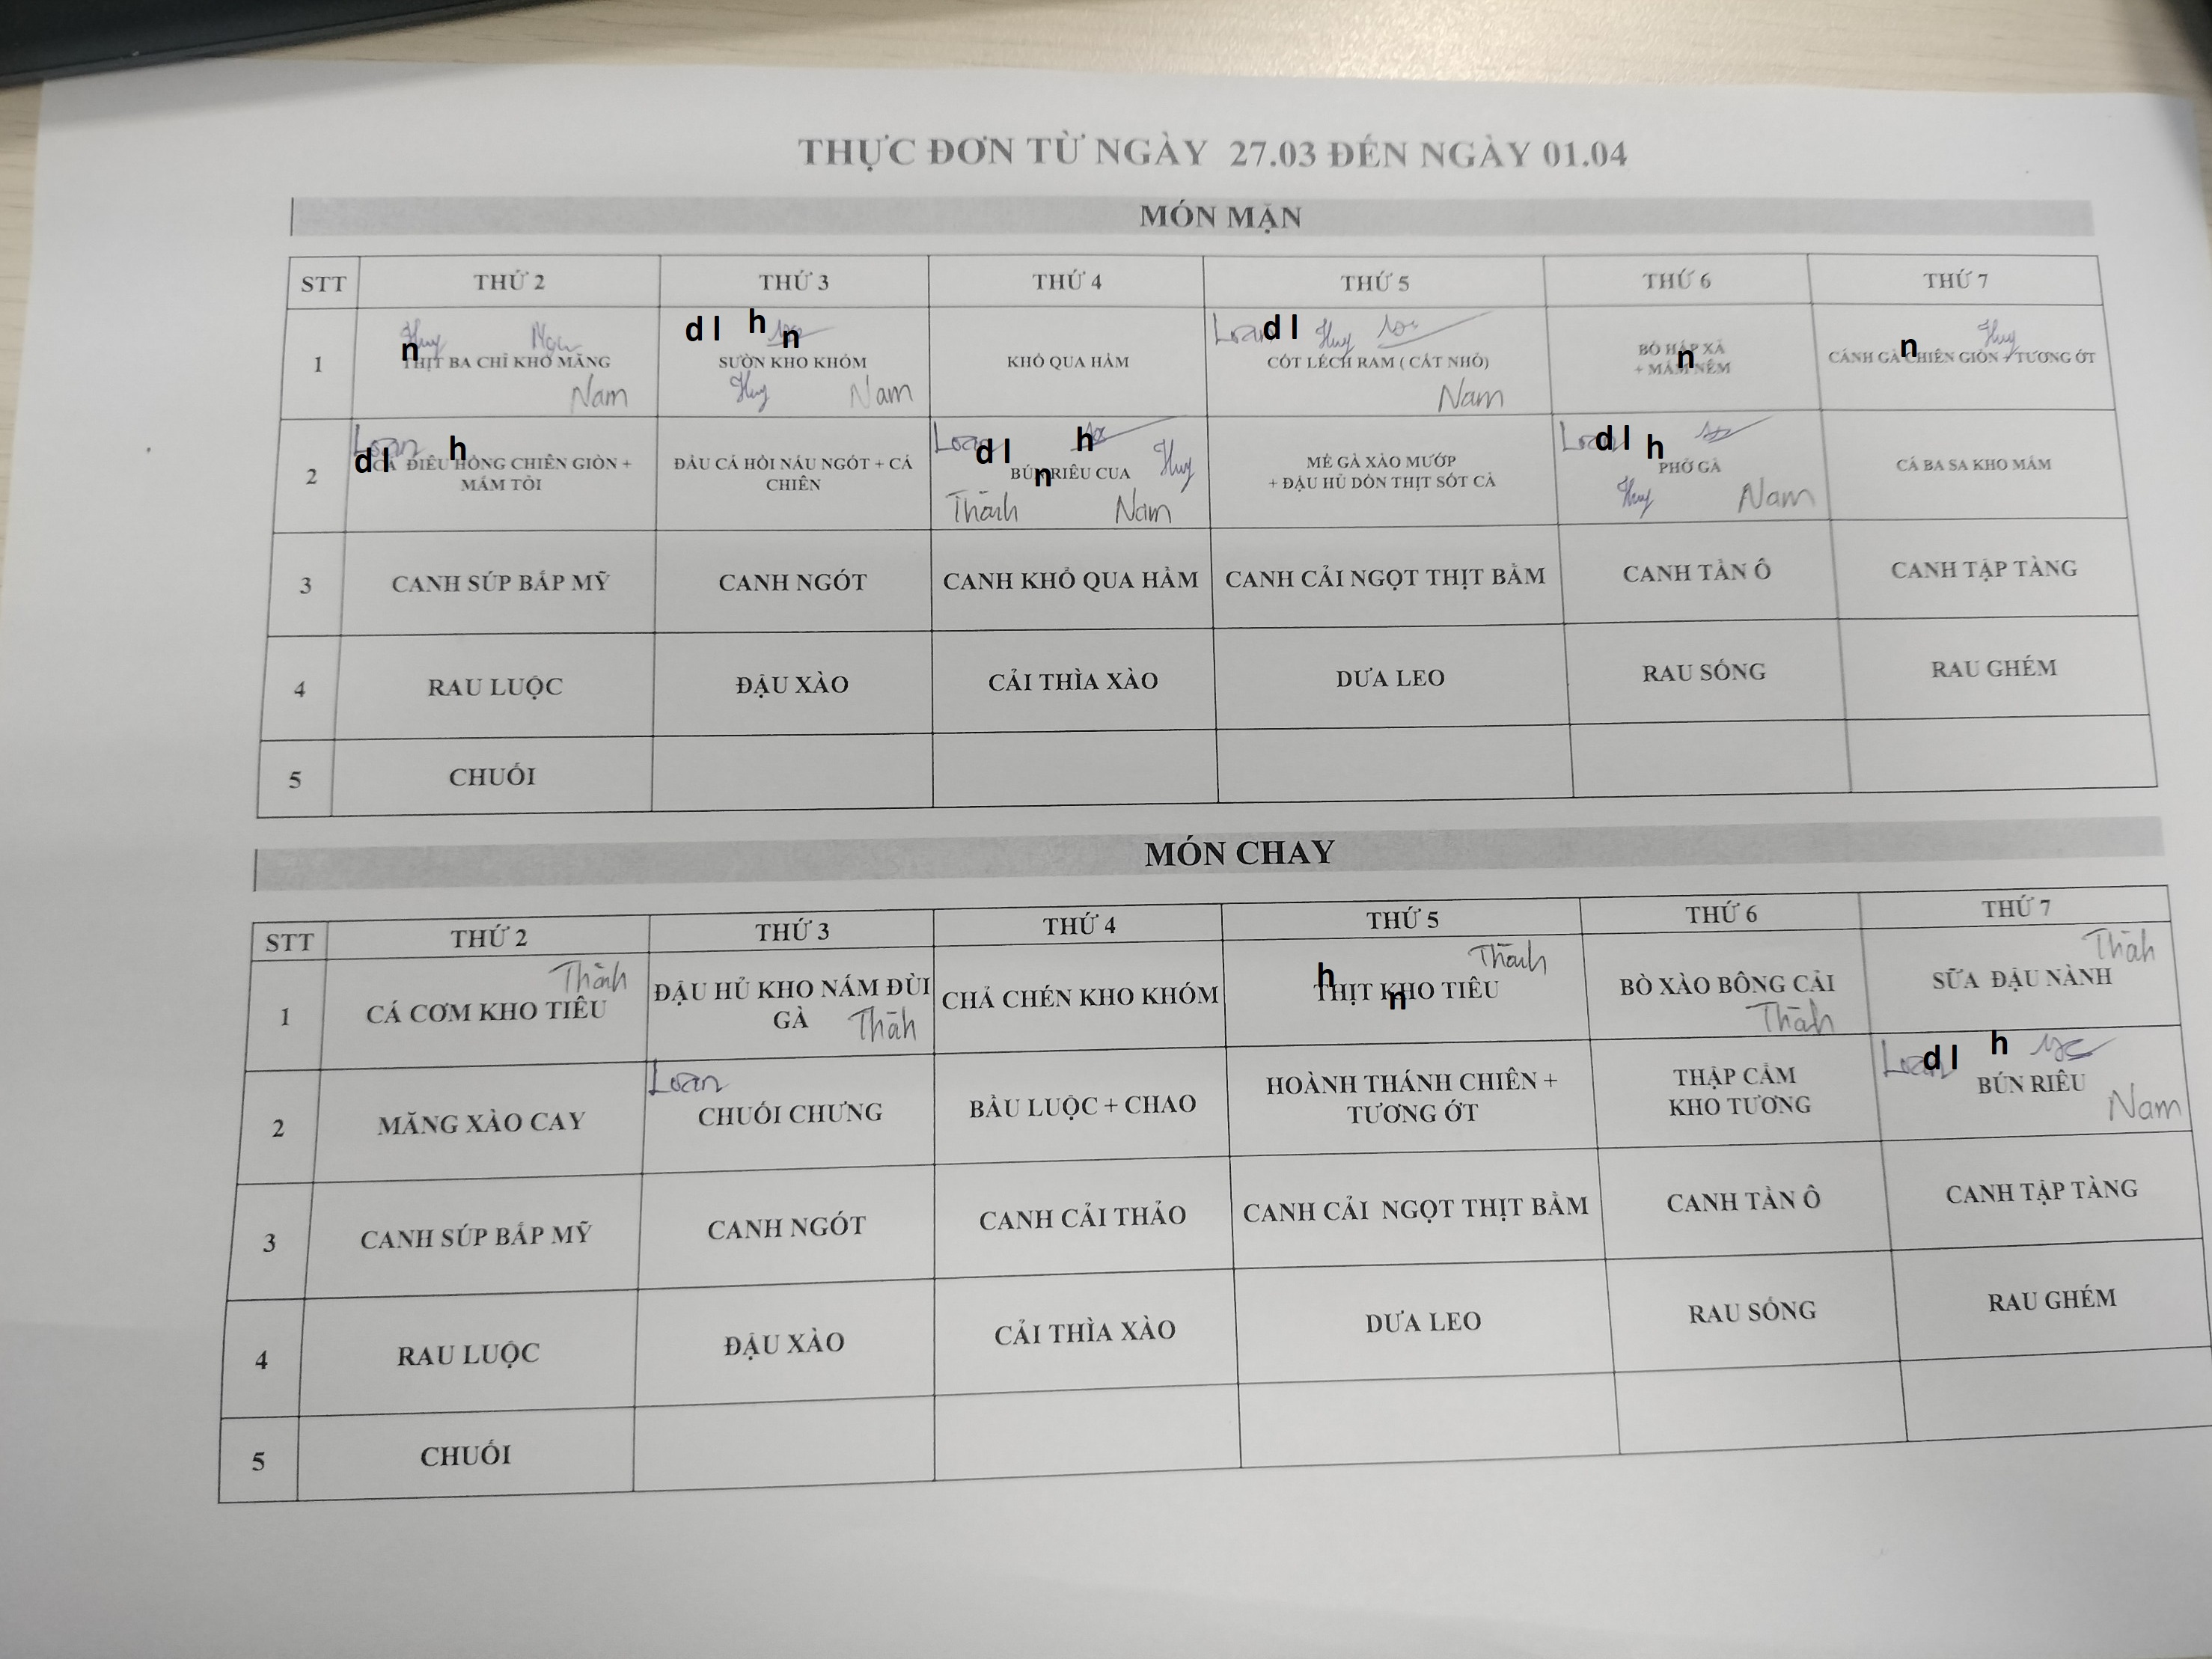 THỰC ĐƠN TỪ NGÀY 27.03 ĐẾN NGÀY 01.04
MÓN MẶN
STT THỨ 2 THỨ 3 THỨ 4 THỨ 5 THỨ 6 THỨ 7
1
Huy
n
THỊT BA CHỈ KHO MĂNG
Nam
d l h n
SƯỜN KHO KHÓM
Huy Nam
KHỔ QUA HẦM
Loan d l Huy
CỐT LẾCH RAM ( CẮT NHỎ)
Nam
BÒ HẤP XẢ
n
+ MẮM NÊM
Huy
n
CÁNH GÀ CHIÊN GIÒN + TƯƠNG ỚT
2
Loan h
d l
CÁ ĐIÊU HỒNG CHIÊN GIÒN +
MẮM TỎI
ĐẦU CÁ HỒI NẤU NGÓT + CÁ
CHIÊN
Loan d l h
BÚN RIÊU CUA Huy
n
Thành Nam
MỀ GÀ XÀO MƯỚP
+ ĐẬU HŨ DỒN THỊT SỐT CÀ
Loan d l h
PHỞ GÀ
Huy Nam
CÁ BA SA KHO MẮM
3 CANH SÚP BẮP MỸ CANH NGÓT CANH KHỔ QUA HẦM CANH CẢI NGỌT THỊT BẰM CANH TẦN Ô CANH TẬP TÀNG
4 RAU LUỘC ĐẬU XÀO CẢI THÌA XÀO DƯA LEO RAU SỐNG RAU GHÉM
5 CHUỐI
MÓN CHAY
STT THỨ 2 THỨ 3 THỨ 4 THỨ 5 THỨ 6 THỨ 7
1
Thành
CÁ CƠM KHO TIÊU
ĐẬU HỦ KHO NẤM ĐÙI
GÀ Thành
CHẢ CHÉN KHO KHÓM
h Thành
THỊT KHO TIÊU
n
BÒ XÀO BÔNG CẢI
Thành
Thành
SỮA ĐẬU NÀNH
2
MĂNG XÀO CAY
Loan
CHUỐI CHƯNG
BẦU LUỘC + CHAO
HOÀNH THÁNH CHIÊN +
TƯƠNG ỚT
THẬP CẨM
KHO TƯƠNG
Loan d l h
BÚN RIÊU
Nam
3 CANH SÚP BẮP MỸ CANH NGÓT CANH CẢI THẢO CANH CẢI NGỌT THỊT BẰM CANH TẦN Ô CANH TẬP TÀNG
4 RAU LUỘC ĐẬU XÀO CẢI THÌA XÀO DƯA LEO RAU SỐNG RAU GHÉM
5 CHUỐI